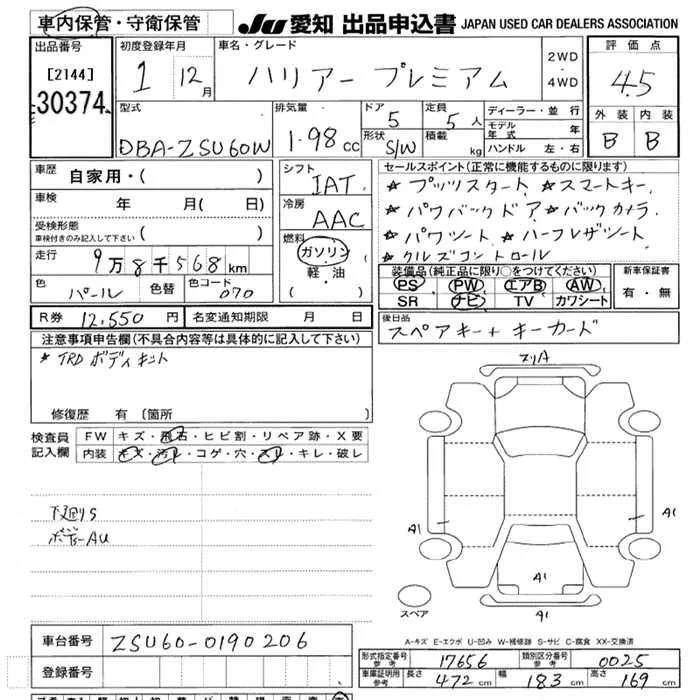 車内保管・守衛保管
JU 愛知 出品申込書 JAPAN USED CAR DEALERS ASSOCIATION
出品番号
[2144]
30374
初度登録年月
1 12月
車名・グレード
ハリアー プレミアム
2WD
4WD
評価点
4.5
外装 内装
B B
型式
DBA-ZSU60W
排気量
1.98cc
ドア
5
定員
5人
形状
S/W
積載
kg
ディーラー・並行
モデル年式 年
ハンドル 左・右
車歴
自家用・( )
車検 年 月( 日)
受検形態
車検付きのみ記入して下さい ( )
走行
9万8千568km
色
パール
色替
色コード
070
シフト
IAT
冷房
AAC
燃料
ガソリン
軽・油
( )
セールスポイント(正常に機能するものに限ります)
★プッツスタート ★スマートキー
★パワバックドア ★バックカメラ
★パワシート ★ハーフレザシート
★クルズコントロール
装備品(純正品に限り○をつけてください)
PS PW エアB AW
SR ナビ TV カワシート
新車保証書
有・無
R券 12,550円 名変通知期限 月 日
後日品
スペアキー+キーカード
注意事項申告欄(不具合内容等は具体的に記入して下さい)
★TRDボディキット
修復歴 有〔箇所
検査員記入欄
FW キズ・飛石・ヒビ割・リペア跡・X要
内装 キズ・汚レ・コゲ・穴・スレ・キレ・破レ
下廻りS
ボデーAU
スリA
A1
A1
A1
A1
スペア
A-キズ E-エクボ U-凹み W-補修跡 S-サビ C-腐食 XX-交換済
車台番号 ZSU60-0190206
登録番号
形式指定番号 参考 17656 類別区分番号 参考 0025
車庫証明用 参考 長さ 472cm 幅 183cm 高さ 169cm